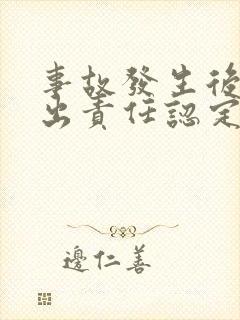 事故發生後
出責任認定
邊仁善